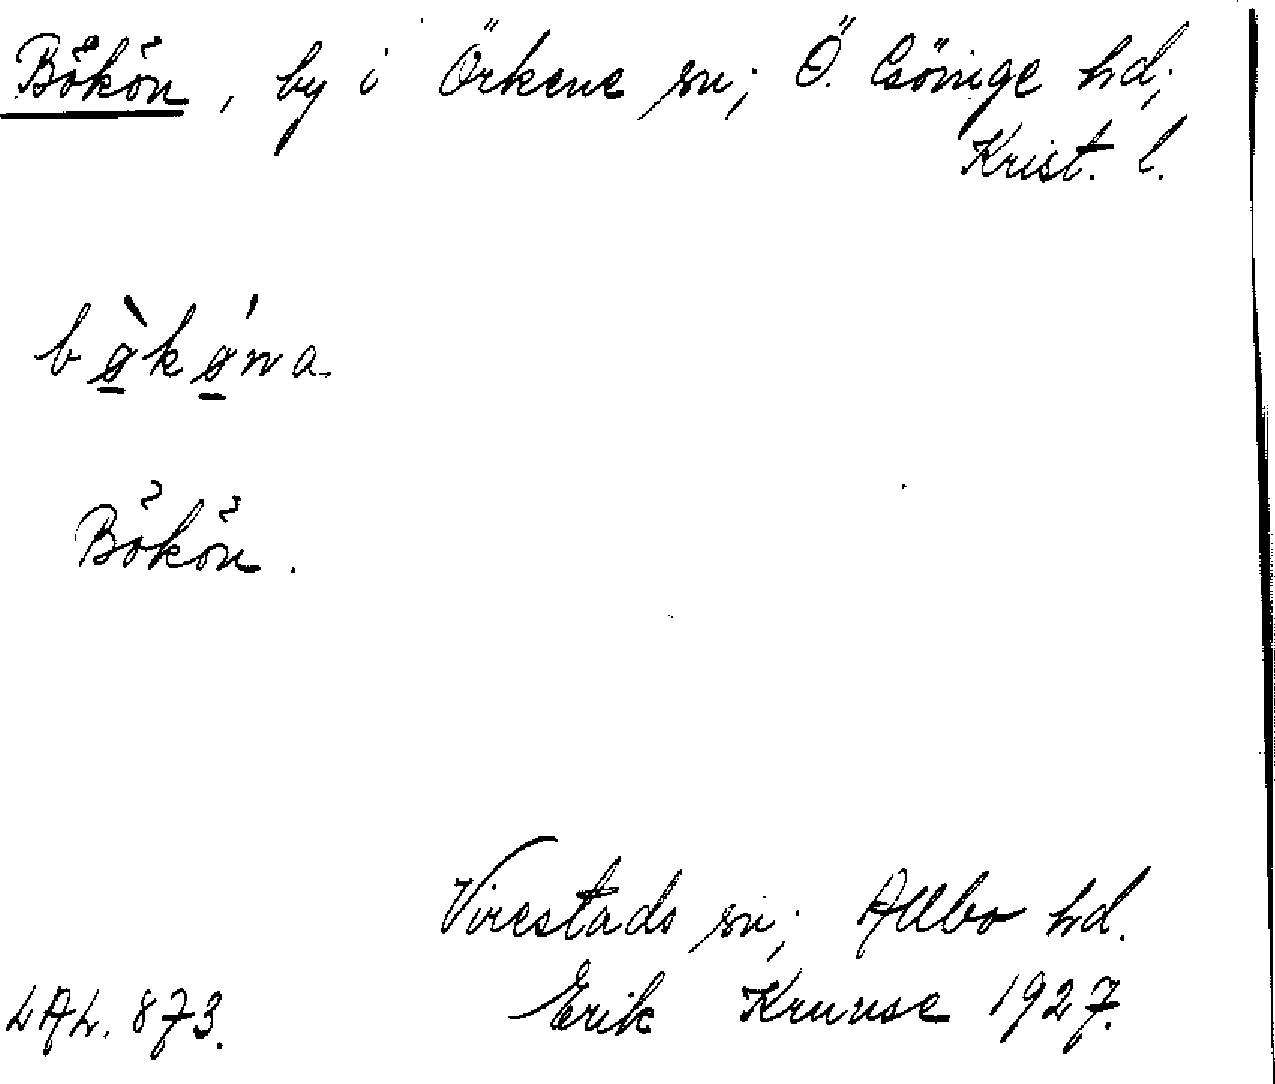 Bökön, by i Örkene sn; Ö. Göinge hd;
Krist. l.
Bökön.
Virestads sn; Allbo hd.
LAL. 873. Erik Krunse 1927.